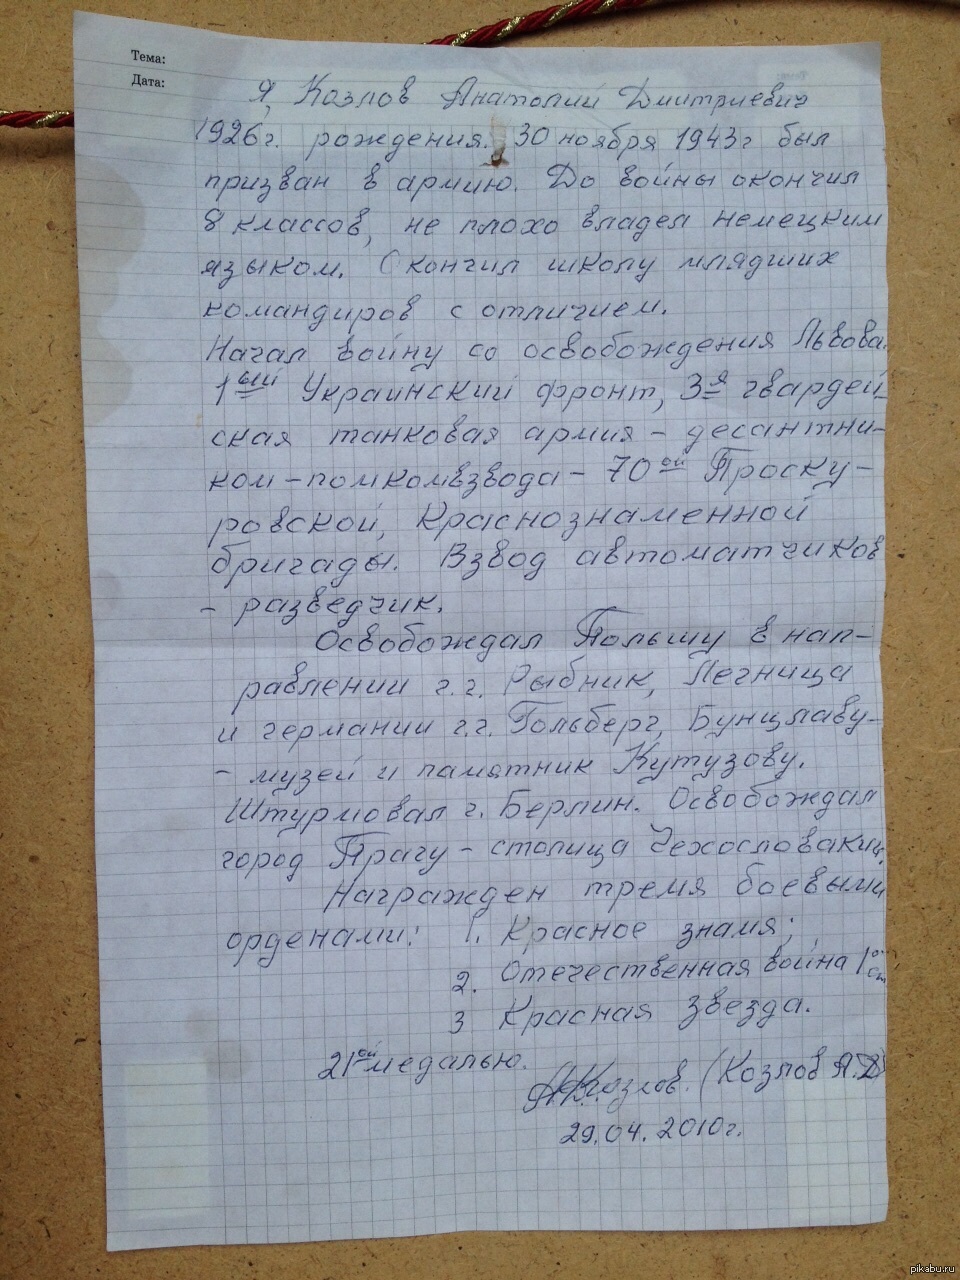 Тема:
Дата:
Я, Козлов Анатолий Дмитриевич
1926г. рождения. 30 ноября 1943г был
призван в армию. До войны окончил
8 классов, не плохо владел немецким
языком. Окончил школу младших
командиров с отличием.
Начал войну со освобождения Львова.
1ый Украинский фронт, 3я гвардей-
ская танковая армия - десантни-
ком - помкомвзвода - 70ой Проску-
ровской, Краснознаменной
бригады. Взвод автоматчиков
- разведчик.
Освобождал Польшу в нап-
равлении г.г. Рыбник, Легница
и германии г.г. Гольберг, Бунцлаву-
- музей и памятник Кутузову.
Штурмовал г. Берлин. Освобождал
город Прагу - столица Чехословакии.
Награжден тремя боевыми
орденами: 1. Красное знамя;
2. Отечественная война 1ой ст
3 Красная звезда.
21ой медалью.
А.Козлов. (Козлов А.Д)
29.04.2010г.
pikabu.ru